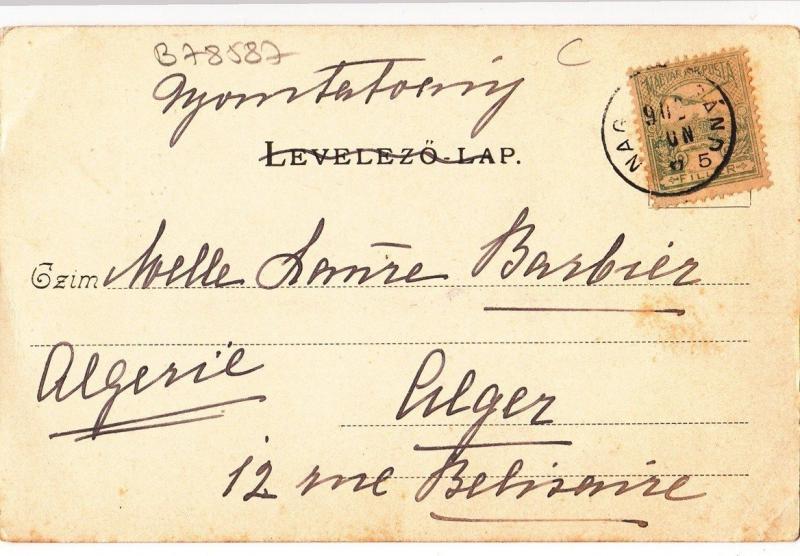 B78587 C
Nyomtatvány
LEVELEZŐ-LAP.
MAGYAR KIR. POSTA
5
FILLÉR
Czim Melle Laure Barbier
Algerie Alger
12 rue Belisaire